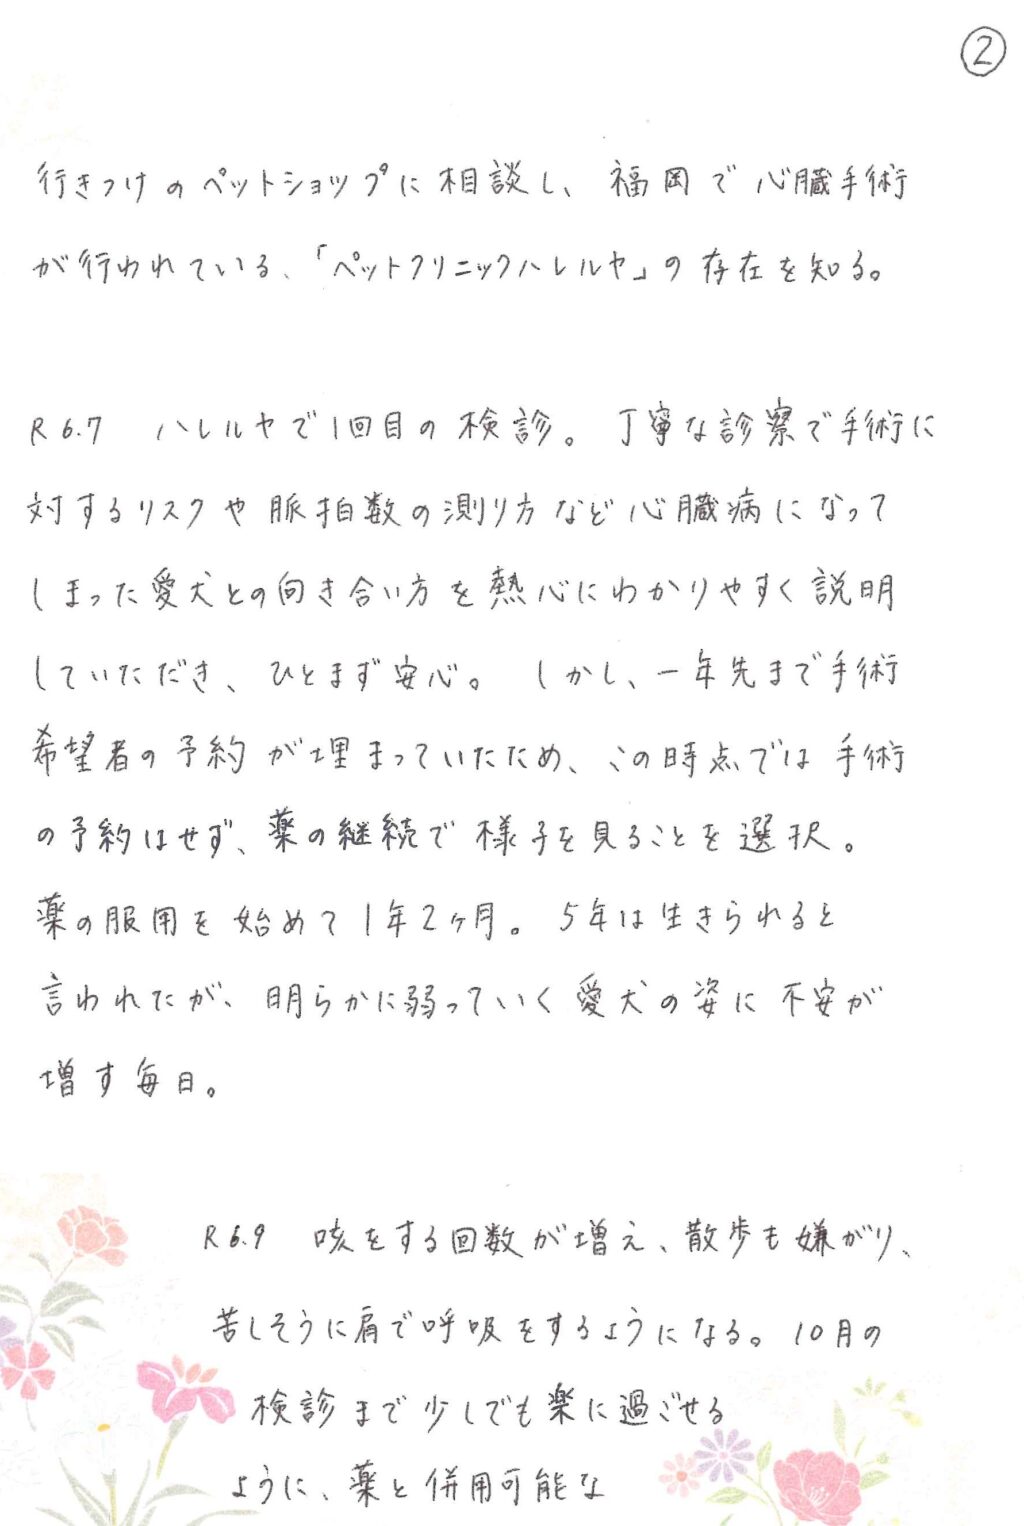 ②
行きつけのペットショップに相談し、福岡で心臓手術
が行われている、「ペットクリニックハレルヤ」の存在を知る。
R6.7 ハレルヤで1回目の検診。丁寧な診察で手術に
対するリスクや脈拍数の測り方など心臓病になって
しまった愛犬との向き合い方を熱心にわかりやすく説明
していただき、ひとまず安心。しかし、一年先まで手術
希望者の予約が埋まっていたため、この時点では手術
の予約はせず、薬の継続で様子を見ることを選択。
薬の服用を始めて1年2ヶ月。5年は生きられると
言われたが、明らかに弱っていく愛犬の姿に不安が
増す毎日。
R6.9 咳をする回数が増え、散歩も嫌がり、
苦しそうに肩で呼吸をするようになる。10月の
検診まで少しでも楽に過ごせる
ように、薬と併用可能な